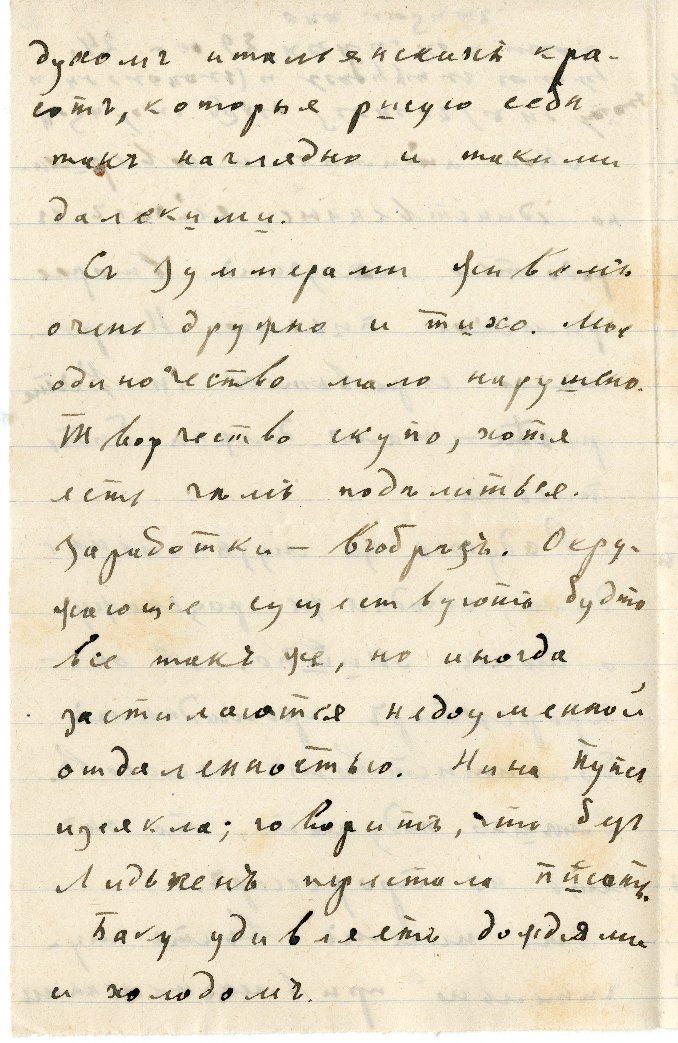 духомъ итальянскихъ кра-
сотъ, которыя рисую себѣ
такъ наглядно и такими
далекими.
Съ Зуммерами живемъ
очень дружно и тихо. Мое
одиночество мало нарушено.
Творчество скупо, хотя
есть чѣмъ подѣлиться.
Заработки — въ обрѣзъ. Окру-
жающіе существуютъ будто
все такъ же, но иногда
застилаются недоуменной
отдаленностью. Нина
изсякла; говоритъ, что безъ
перестала писать.
Баку удивляетъ дождями
и холодомъ.